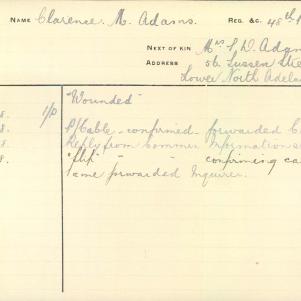 NAME Clarence. M. Adams. REG. &C. 48th
NEXT OF KIN Mrs S. D. Adam
ADDRESS 56. Sussex Stre
Lower North Adelai
"Wounded"
8. 1/0 P/Cable - confirmed - forwarded C
8. Reply from Commr. Information se
8. - " - confirming ca
Same forwarded Inquirer.